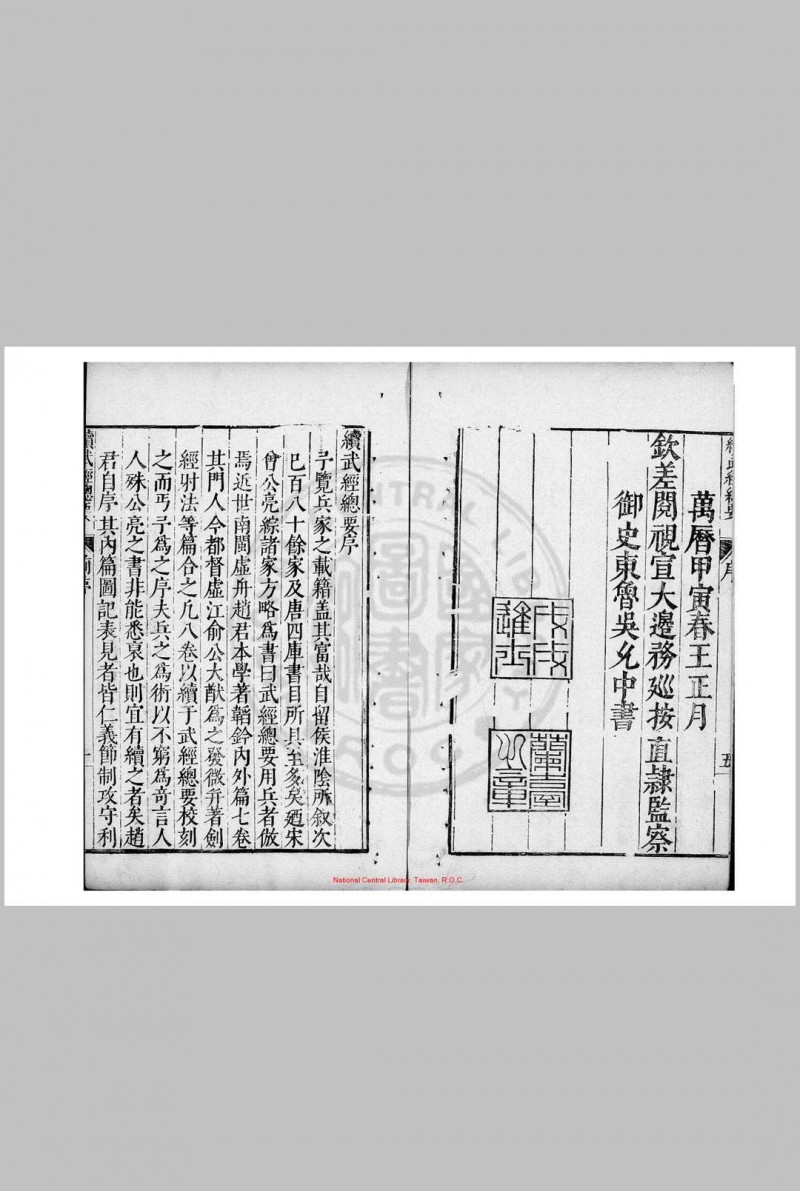 續武經總要 序 五
萬曆甲寅春王正月
欽差閱視宣大邊務巡按直隸監察
御史東魯吳允中書
戊戌進士
蘭臺之章
續武經總要序
予覽兵家之載籍盖其富哉自留侯淮陰所叙次
已百八十餘家及唐四庫書目所具至多矣廼宋
曾公亮綜諸家方略爲書曰武經總要用兵者倣
焉近世南閩虛舟趙君本學著韜鈐內外篇七卷
其門人今都督虛江俞公大猷爲之發微幷著劍
經射法等篇合之凢八卷以續于武經總要校刻
之而丐予爲之序夫兵之爲術以不窮爲奇言人
人殊公亮之書非能悉裒也則宜有續之者矣趙
君自序其內篇圖記表見者皆仁義節制攻守利
續武經總要 前序 一
National Central Library, Taiwan, R.O.C.